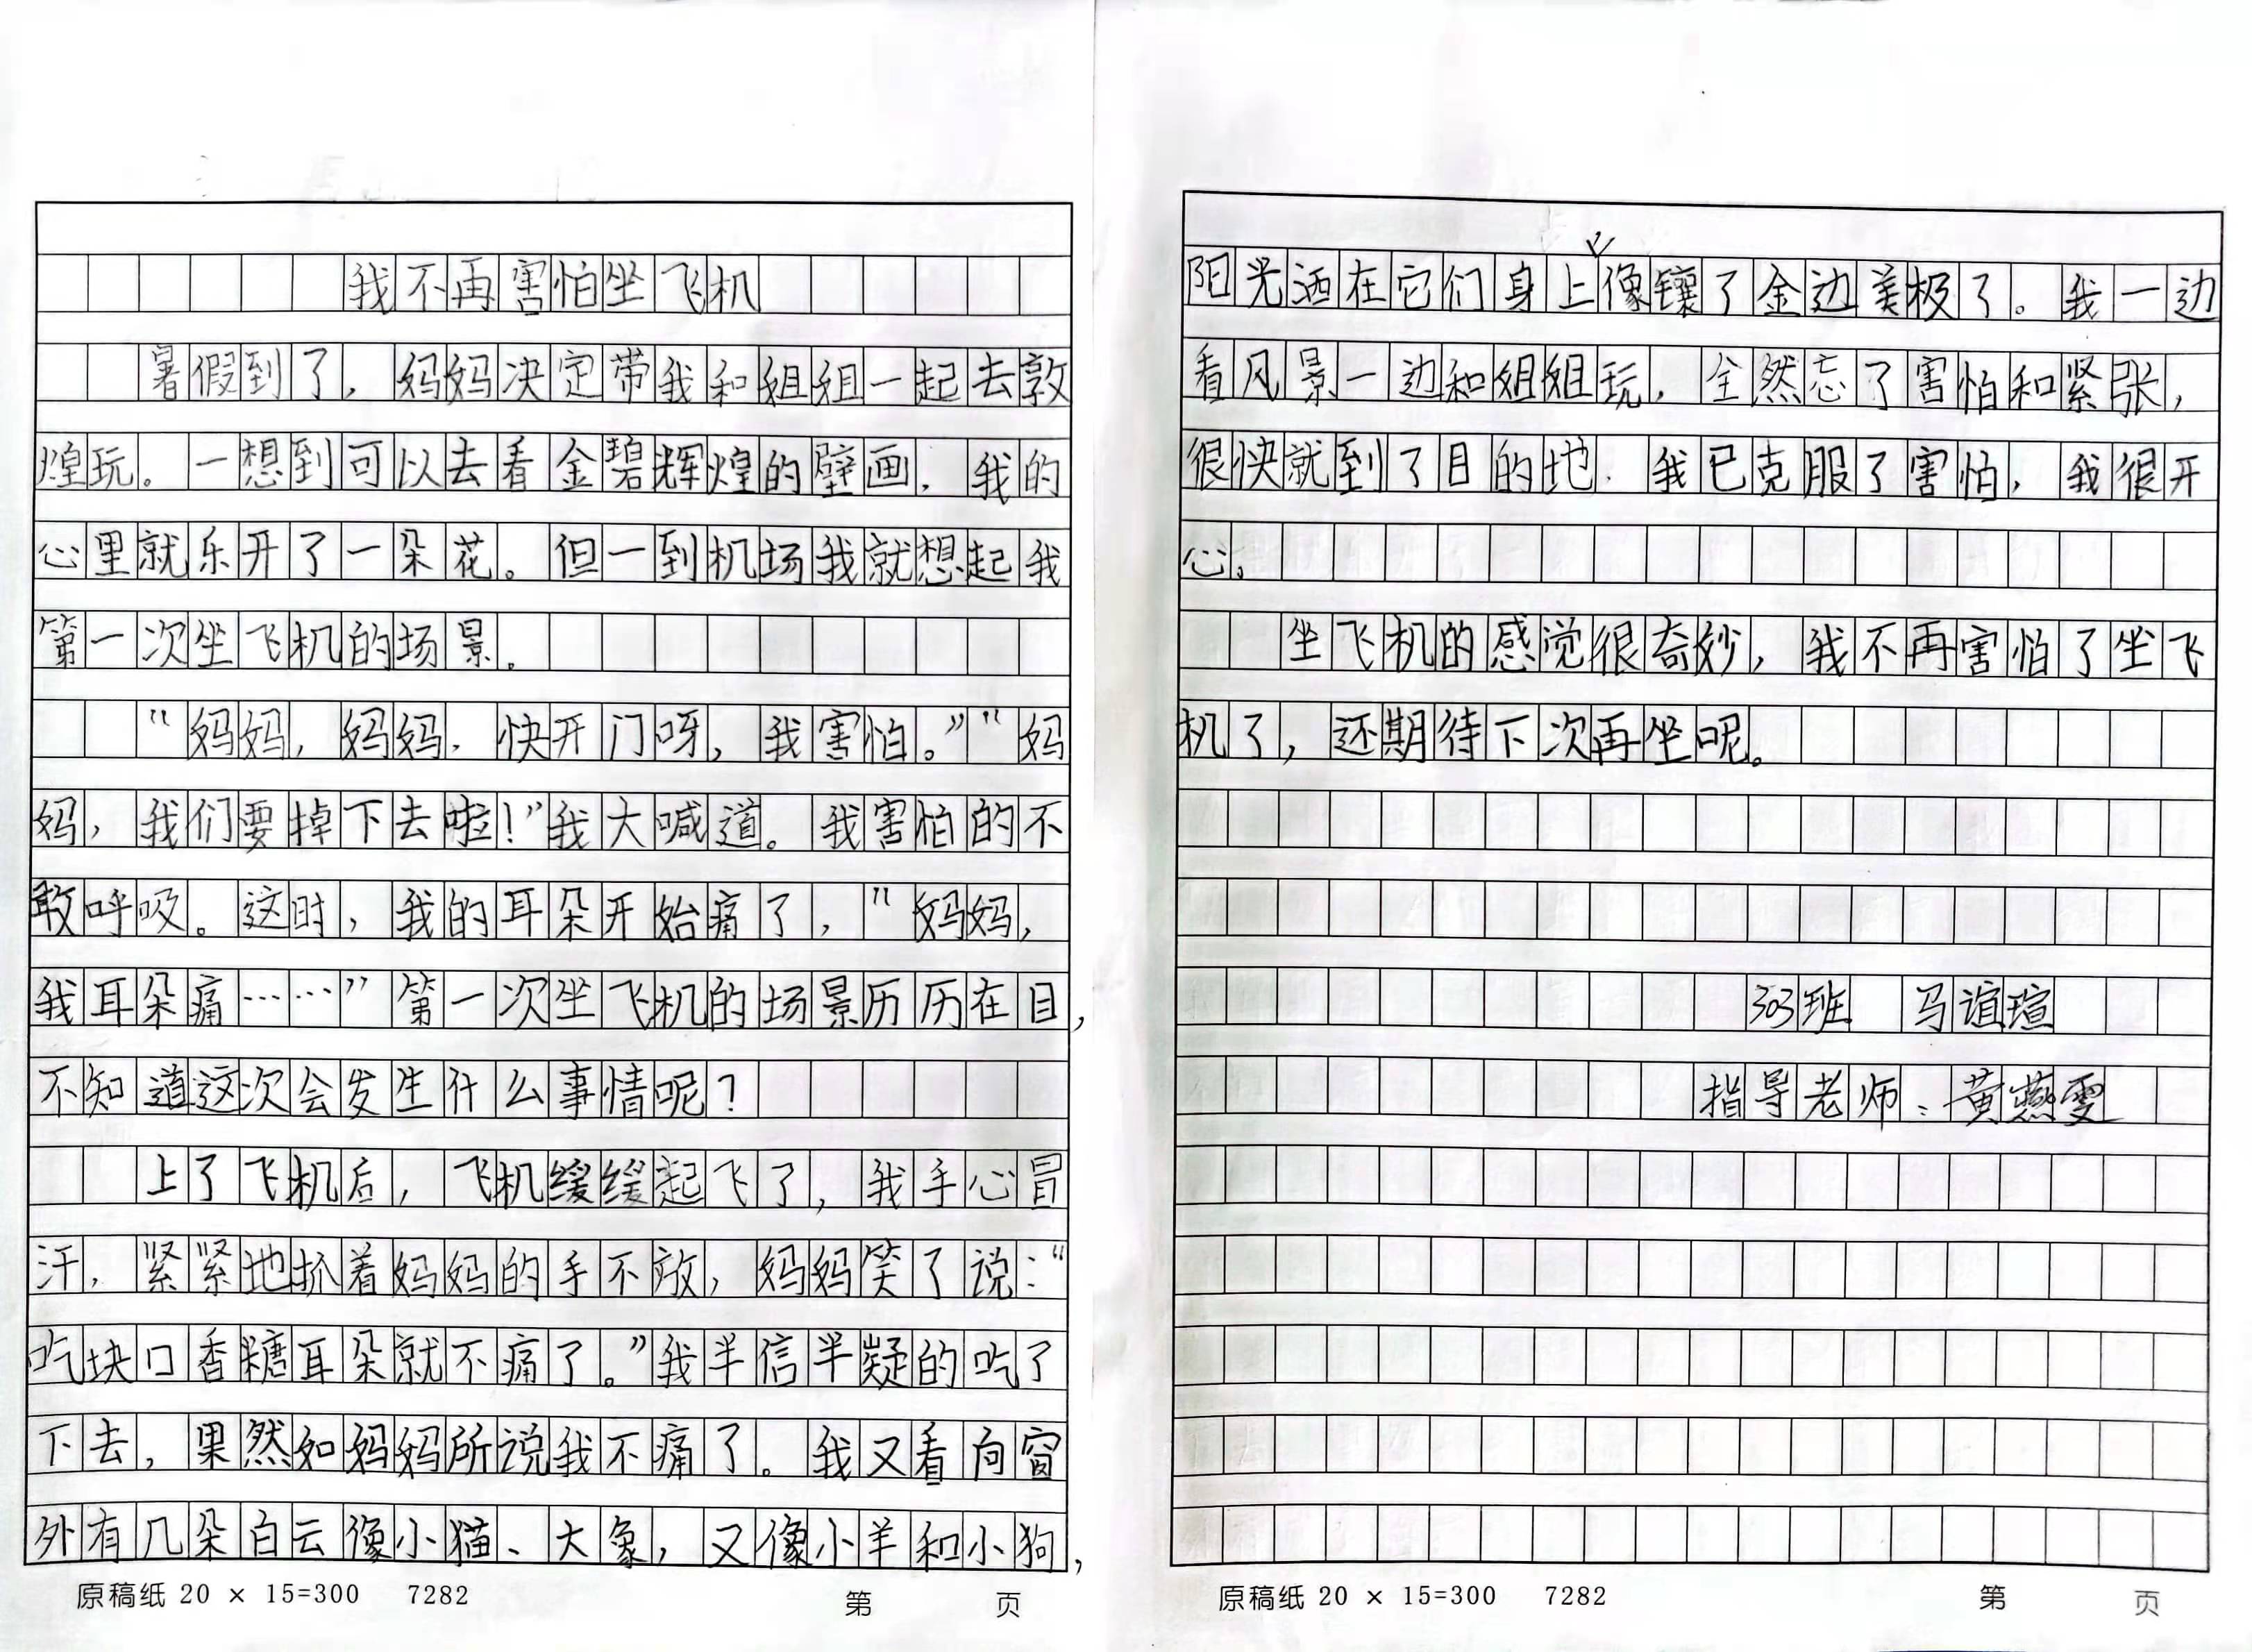 我不再害怕坐飞机
暑假到了，妈妈决定带我和姐姐一起去敦
煌玩。一想到可以去看金碧辉煌的壁画，我的
心里就乐开了一朵花。但一到机场我就想起我
第一次坐飞机的场景。
“妈妈，妈妈，快开门呀，我害怕。”“妈
妈，我们要掉下去啦！”我大喊道。我害怕的不
敢呼吸。这时，我的耳朵开始痛了，“妈妈，
我耳朵痛……”第一次坐飞机的场景历历在目，
不知道这次会发生什么事情呢？
上了飞机后，飞机缓缓起飞了，我手心冒
汗，紧紧地抓着妈妈的手不放，妈妈笑了说：“
吃块口香糖耳朵就不痛了。”我半信半疑的吃了
下去，果然如妈妈所说我不痛了。我又看向窗
外有几朵白云像小猫、大象，又像小羊和小狗，
原稿纸 20 × 15=300 7282 第 页
阳光洒在它们身上，像镶了金边美极了。我一边
看风景一边和姐姐玩，全然忘了害怕和紧张，
很快就到了目的地。我已克服了害怕，我很开
心。
坐飞机的感觉很奇妙，我不再害怕了坐飞
机了，还期待下次再坐呢。
303班 马谊瑄
指导老师：黄燕雯
原稿纸 20 × 15=300 7282 第 页